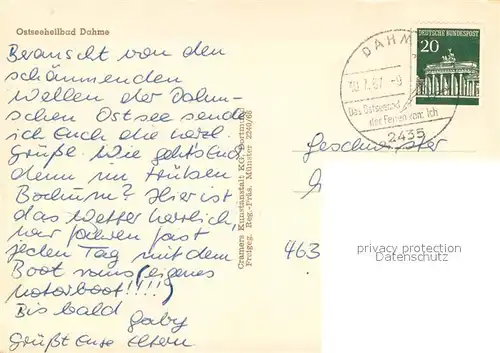 Ostseeheilbad Dahme
Berauscht von den
schäumenden
Wellen der Dahm-
schen Ostsee sende
ich Euch die herzl.
Grüße. Wie geht's Euch
denn im trüben
Bochum? Hier ist
das Wetter herrlich,
wir fahren fast
jeden Tag mit dem
Boot raus (eigenes
Motorboot!!!!)
Bis bald
Gaby
Grüßt Eure Eltern
Cramers Kunstanstalt KG, Dortmund
Freigeg. Reg.-Präs. Münster 2240/66
DAHM
67.-9
Das Ostseebad
der Ferien vom Ich
2435
DEUTSCHE BUNDESPOST
20
Geschwister
463
privacy protection
Datenschutz